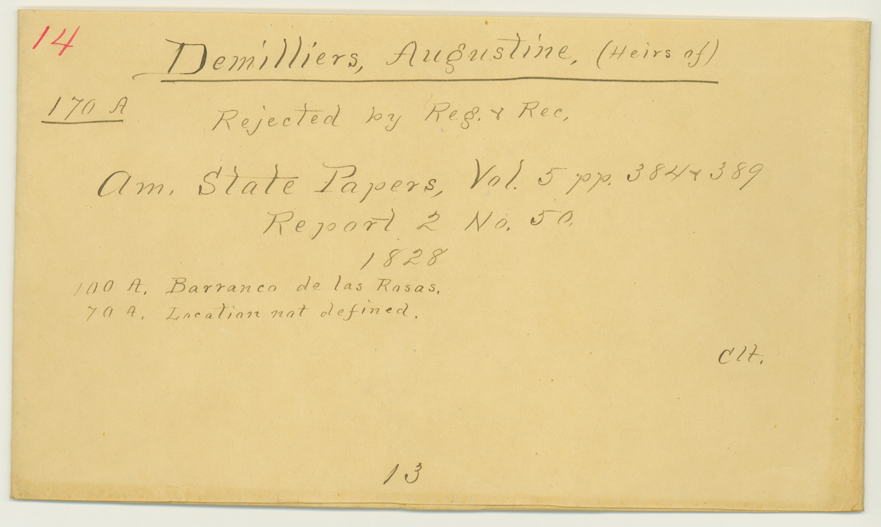 14
Demilliers, Augustine, (Heirs of)
170 A
Rejected by Reg. & Rec.
Am. State Papers, Vol. 5 pp. 384 & 389
Report 2 No. 50.
1828
100 A. Barranco de las Rosas.
70 A. Location not defined.
13